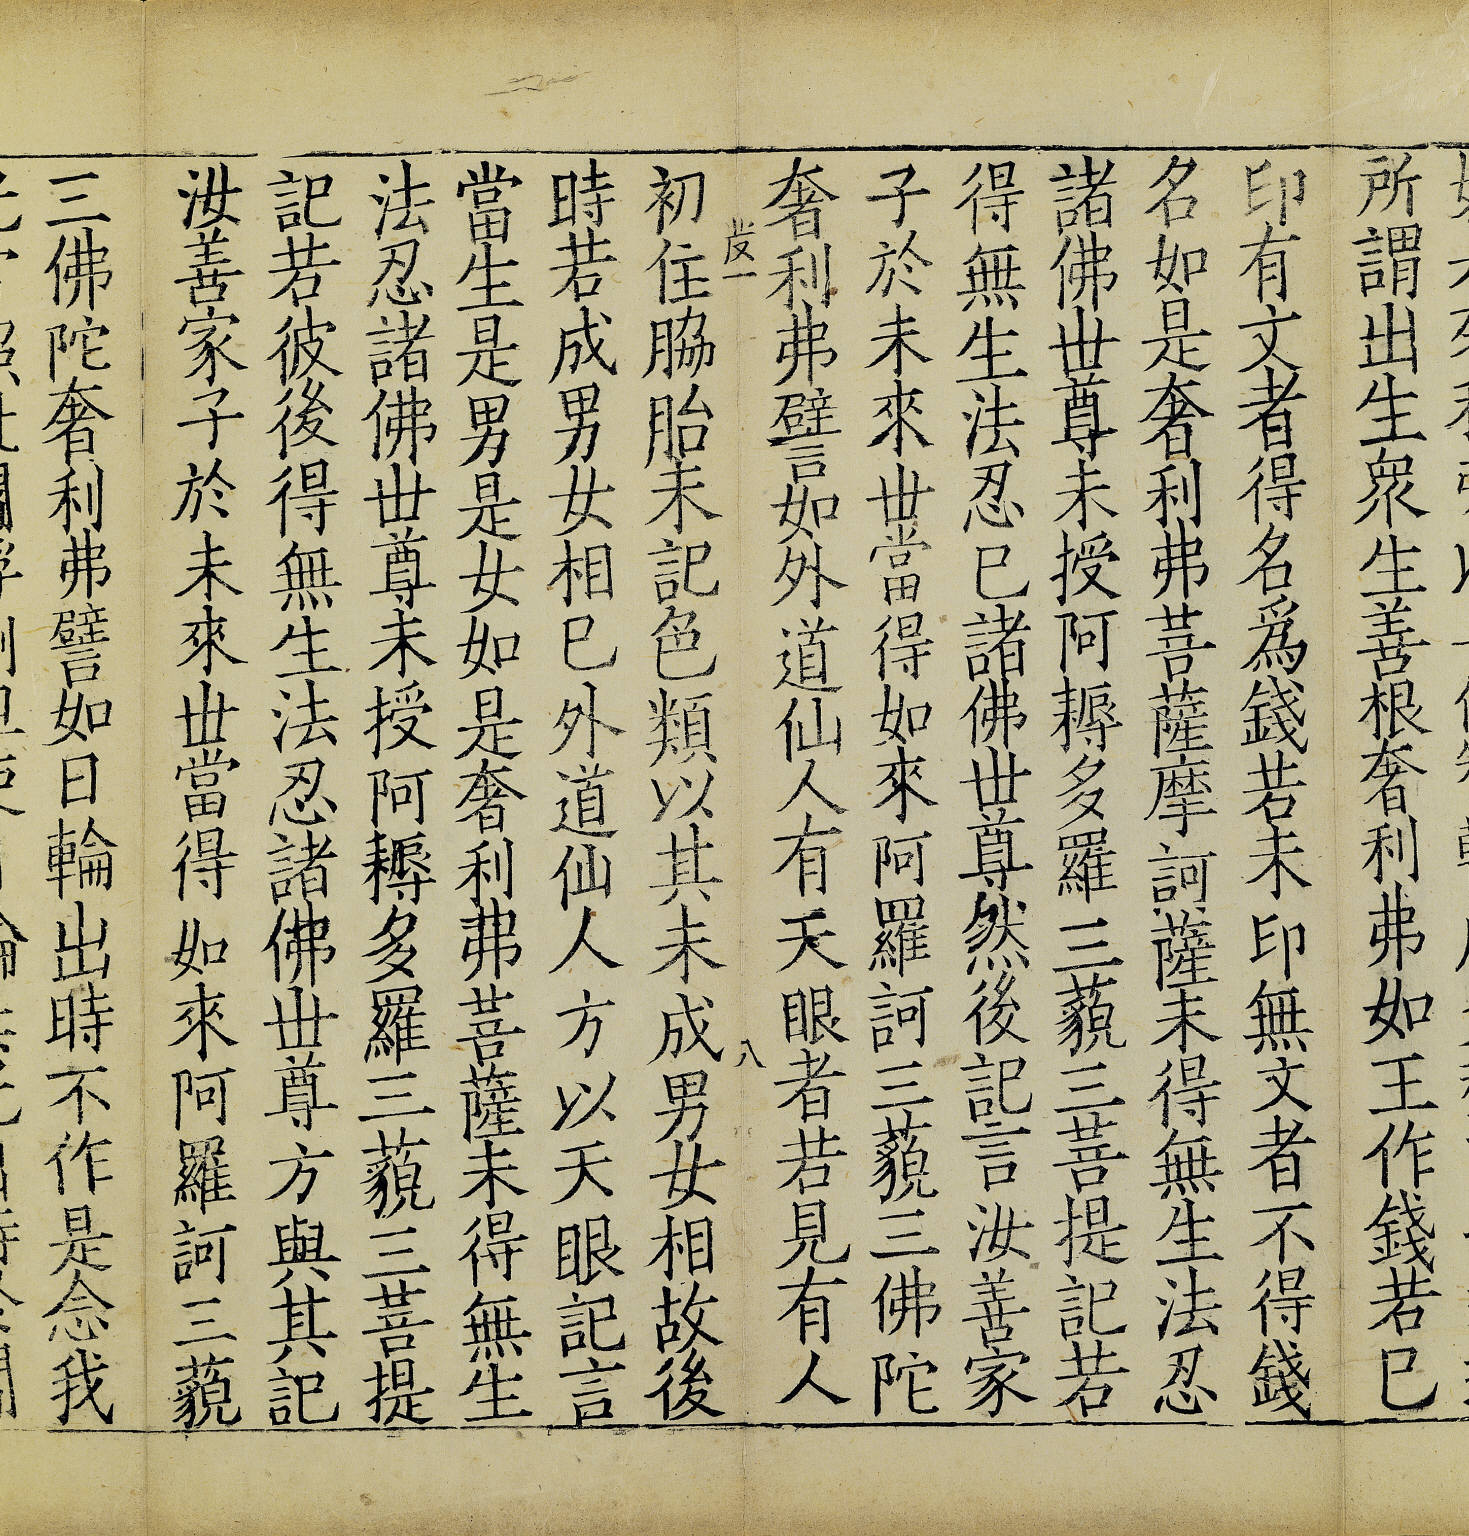 所謂出生衆生善根奢利弗如王作錢若已
印有文者得名爲錢若未印無文者不得錢
名如是奢利弗菩薩摩訶薩未得無生法忍
諸佛世尊未授阿耨多羅三藐三菩提記若
得無生法忍已諸佛世尊然後記言汝善家
子於未來世當得如來阿羅訶三藐三佛陀
奢利弗譬如外道仙人有天眼者若見有人
初住脇胎未記色類以其未成男女相故後
時若成男女相已外道仙人方以天眼記言
當生是男是女如是奢利弗菩薩未得無生
法忍諸佛世尊未授阿耨多羅三藐三菩提
記若彼後得無生法忍諸佛世尊方與其記
汝善家子於未來世當得如來阿羅訶三藐
三佛陀奢利弗譬如日輪出時不作是念我